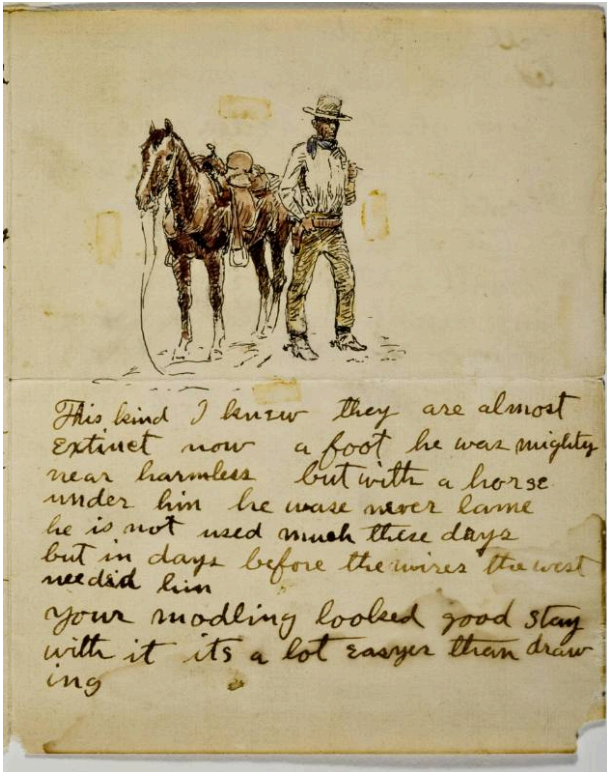 This kind I knew they are almost
extinct now a foot he was mighty
near harmless but with a horse
under him he wase never lame
he is not used much these days
but in days before the wires the west
needed him
your modling looked good stay
with it its a lot easyer than draw
ing